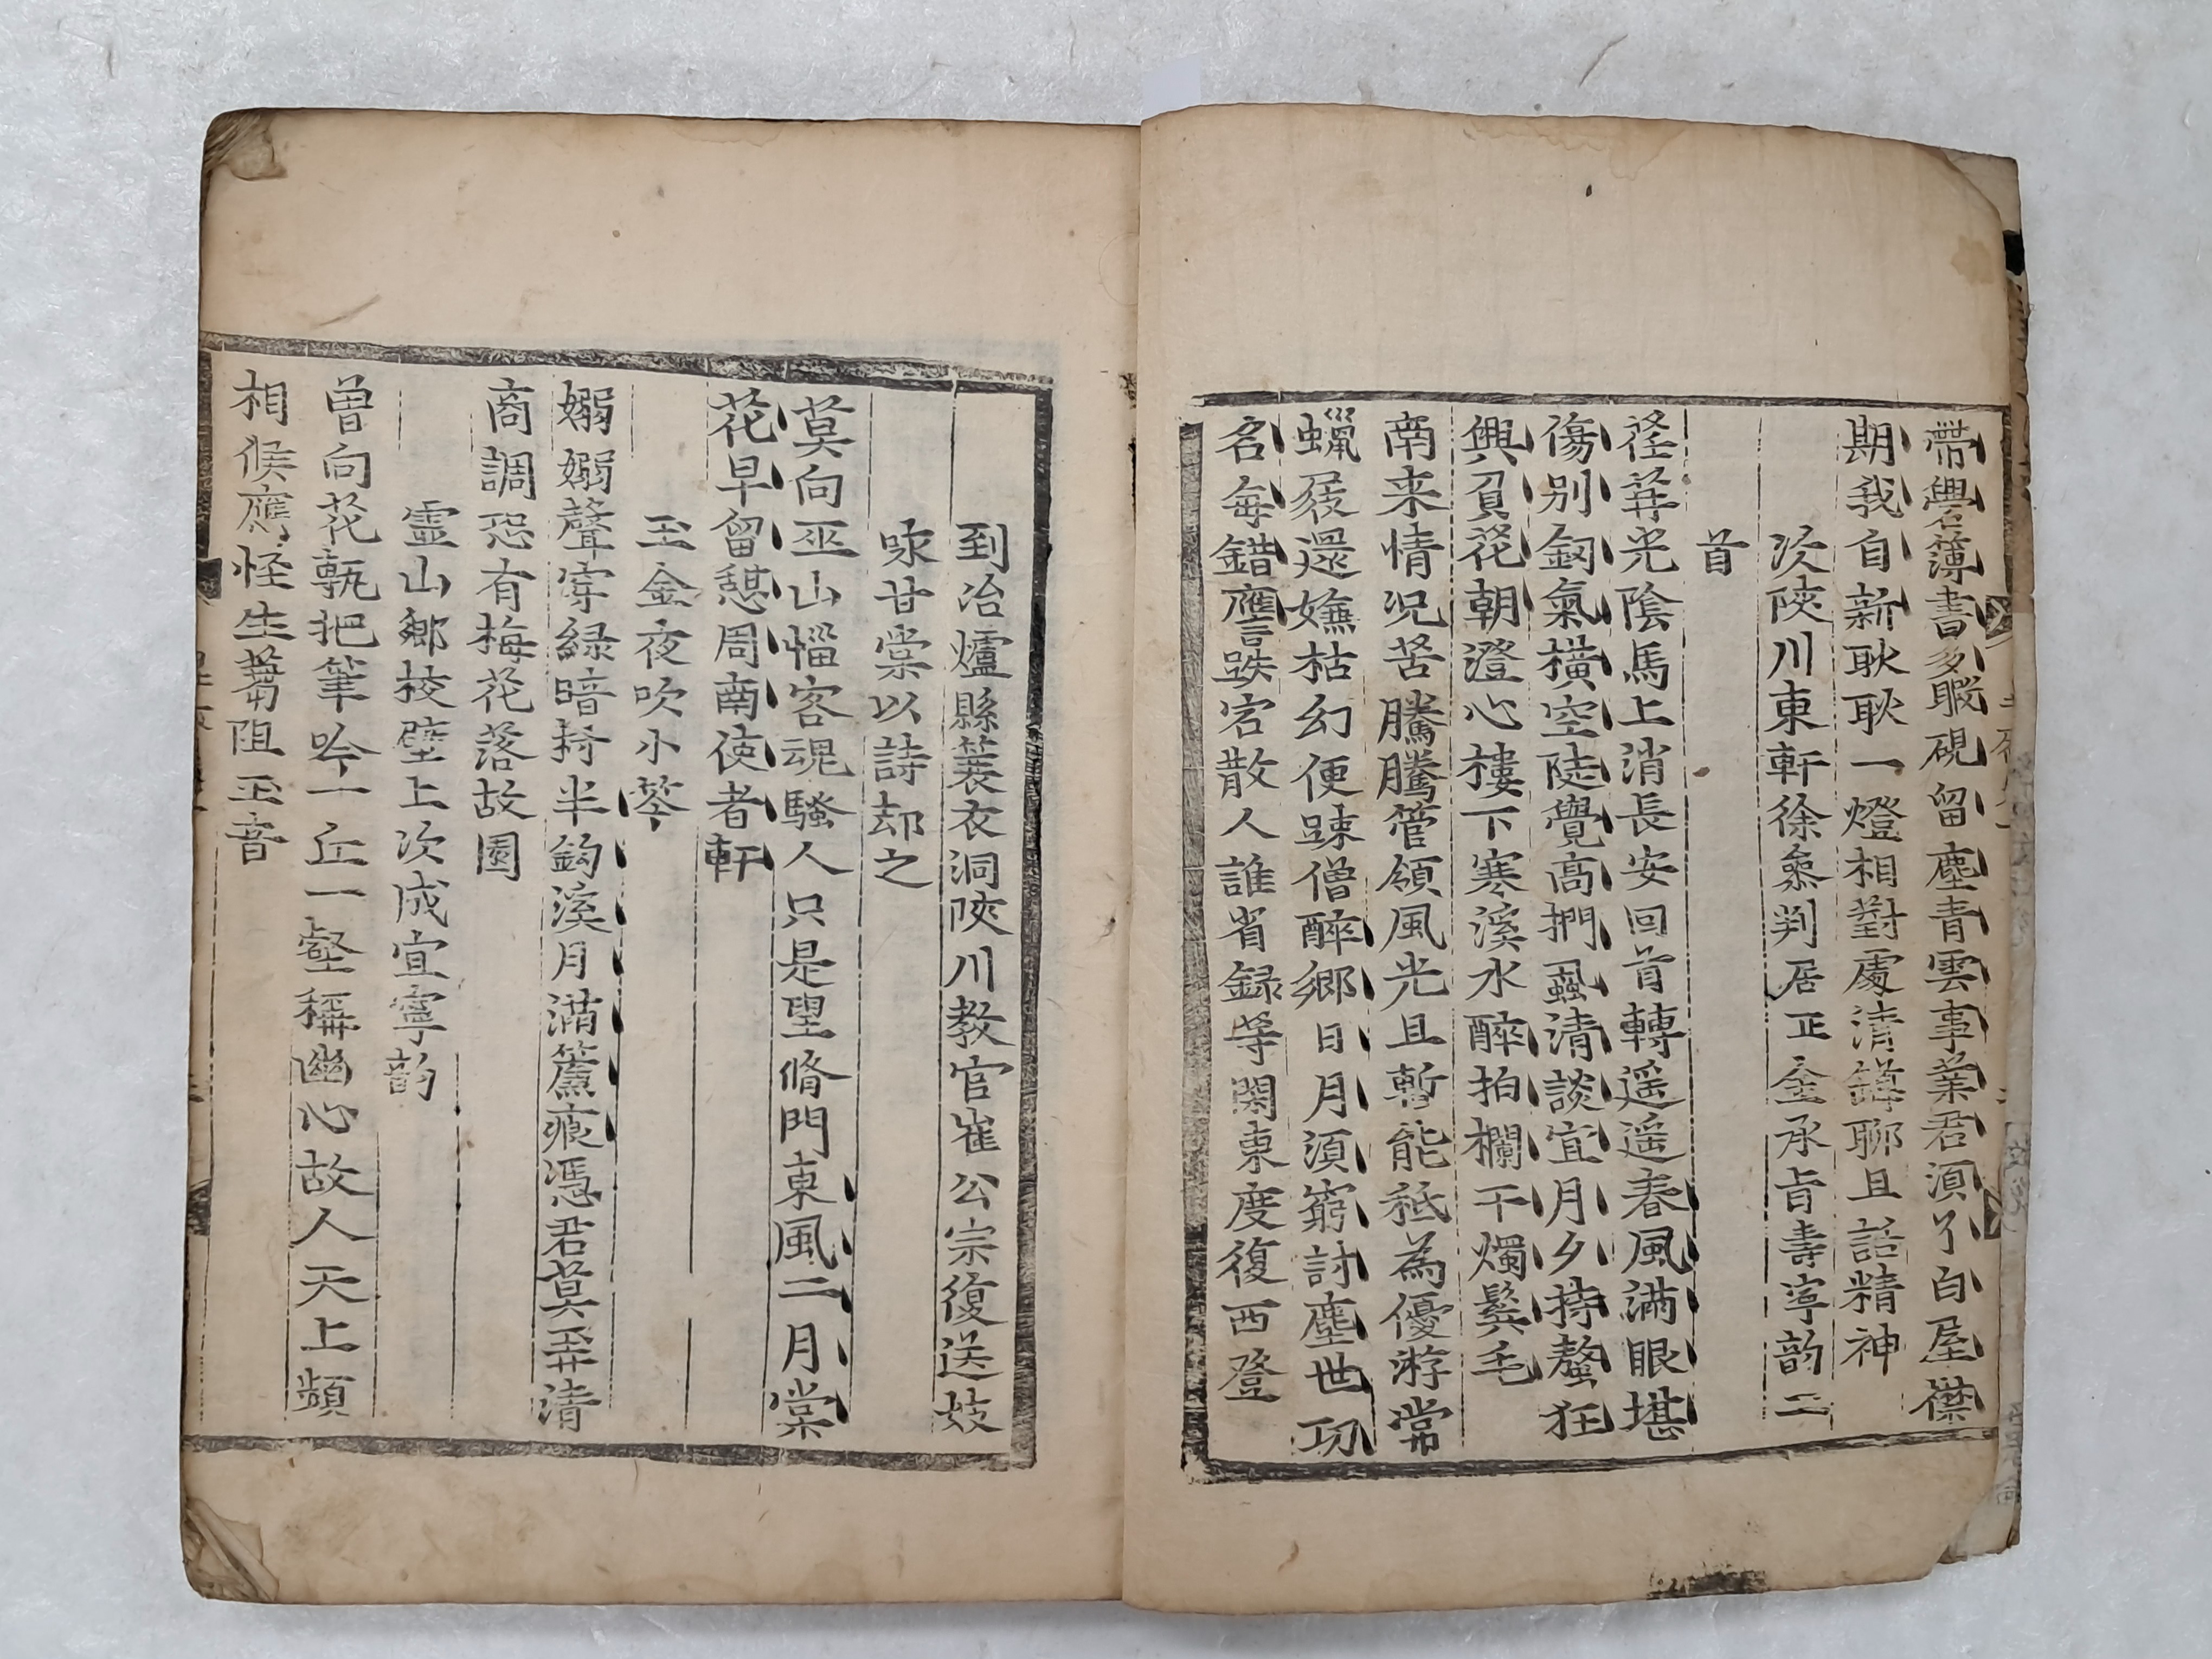 帶學簿書多暇硯留塵青雲事業君須了白屋襟
期我自新耿耿一燈相對處清鐏聊且話精神
次陜川東軒徐叅判居正金承旨壽寧韵二
首
荏苒光隂馬上消長安回首轉遥遥春風滿眼堪
傷别釰氣橫空陡覺高捫蝨清談宜月夕持螯狂
興負花朝澄心樓下寒溪水醉拍欄干燭鬂毛
南来情况苦騰騰管領風光且暫能秪為優游常
蠟屐還嫌枯幻便踈僧醉鄉日月須窮討塵世功
名每錯譍跌宕散人誰省録等閑東度復西登
到冶爐縣蓑衣洞陜川教官崔公宗復送妓
咏甘棠以詩却之
莫向巫山惱客魂騷人只是望脩門東風二月棠
花早留憇周南使者軒
玉金夜吹小笒
嫋嫋聲穿緑暗猗半鈎溪月滿簾痕憑君莫弄清
商調恐有梅花落故園
霊山鄉校壁上次成宜寧韵
曽向花甎把筆吟一丘一壑稱幽心故人天上頻
相候應怪生蒭阻玉音